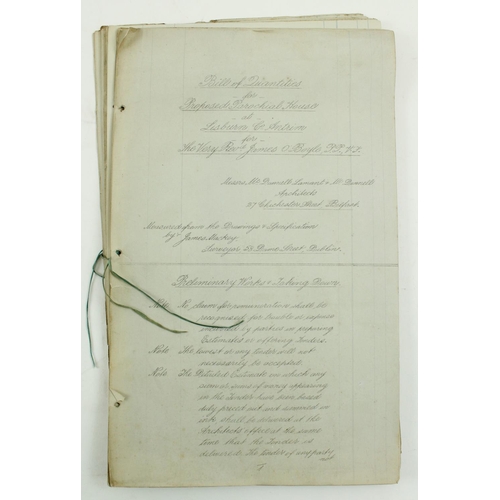 Bill of Quantities
for
Proposed Parochial House
at
Lisburn Co. Antrim
for
The Very Revd. James O'Boyle, P.P., V.F.
Messrs. Mc Donnell & Mc Donnell
Architects
27 Chichester Street Belfast.
Measured from the Drawings & Specification
by James Mackey
Surveyor, 53, Dame Street, Dublin.
Preliminary Works & Taking Down
Note No claim for remuneration shall be
recognised for trouble or expense
incurred by parties in preparing
Estimates or offering Tenders.
Note The lowest or any tender will not
necessarily be accepted.
Note The Detailed Estimate on which any
sum or sums of money appearing
in the Tender have been based
duly priced out and summed in
ink, shall be delivered at the
Architects office at the same
time that the Tender is
delivered. The Tender of any party
1